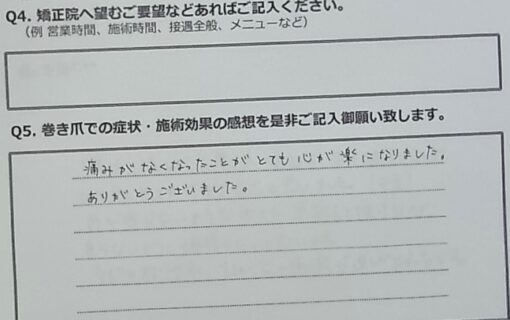 Q4. 矯正院へ望むご要望などあればご記入ください。
（例 営業時間、施術時間、接遇全般、メニューなど）
Q5. 巻き爪での症状・施術効果の感想を是非ご記入御願い致します。
痛みがなくなったことがとても心が楽になりました。
ありがとうございました。